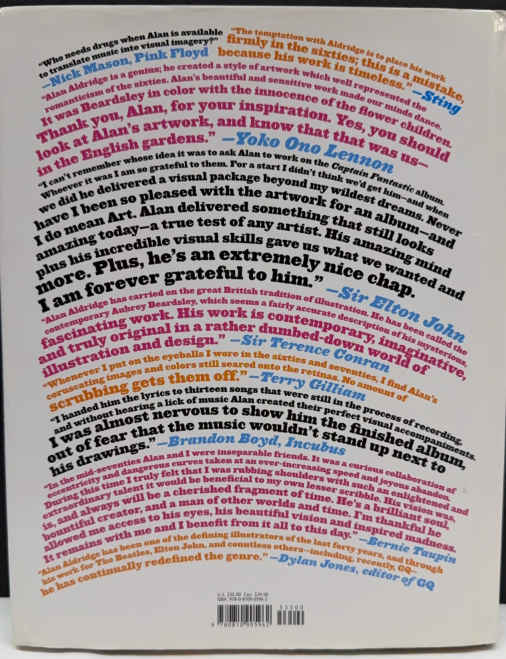 "Who needs drugs when Alan is available
to translate music into visual imagery?"
—Nick Mason, Pink Floyd
"The temptation with Aldridge is to place his work
firmly in the sixties; this is a mistake,
because his work is timeless." —Sting
"Alan Aldridge is a genius; he created a style of artwork which well represented the
romanticism of the sixties. Alan's beautiful and sensitive work made our minds dance.
It was Beardsley in color with the innocence of the flower children.
Thank you, Alan, for your inspiration. Yes, you should
look at Alan's artwork, and know that that was us—
in the English gardens." —Yoko Ono Lennon
"I can't remember whose idea it was to ask Alan to work on the Captain Fantastic album.
Whoever it was I am so grateful to them. For a start I didn't think we'd get him—and when
we did he delivered a visual package beyond my wildest dreams. Never
have I been so pleased with the artwork for an album—and
I do mean Art. Alan delivered something that still looks
amazing today—a true test of any artist. His amazing mind
plus his incredible visual skills gave us what we wanted and
more. Plus, he's an extremely nice chap.
I am forever grateful to him." —Sir Elton John
"Alan Aldridge has carried on the great British tradition of illustration. He has been called the
contemporary Aubrey Beardsley, which seems a fairly accurate description of his mysterious,
fascinating work. His work is contemporary, imaginative,
and truly original in a rather dumbed-down world of
illustration and design." —Sir Terence Conran
"Whenever I put on the eyeballs I wore in the sixties and seventies, I find Alan's
coruscating images and colors still seared onto the retinas. No amount of
scrubbing gets them off." —Terry Gilliam
"I handed him the lyrics to thirteen songs that were still in the process of recording,
and without hearing a lick of music Alan created their perfect visual accompaniments.
I was almost nervous to show him the finished album,
out of fear that the music wouldn't stand up next to
his drawings." —Brandon Boyd, Incubus
"In the mid-seventies Alan and I were inseparable friends. It was a curious collaboration of
eccentricity and dangerous curves taken at an ever-increasing speed and joyous abandon.
During this time I truly felt that I was rubbing shoulders with such an enlightened and
extraordinary talent it would be beneficial to my own lesser scribble. His vision was,
is, and always will be a cherished fragment of time. He's a brilliant soul,
bountiful creator, and a man of other worlds and time. I'm thankful he
allowed me access to his eyes, his beautiful vision and inspired madness.
It remains with me and I benefit from it all to this day." —Bernie Taupin
"Alan Aldridge has been one of the defining illustrators of the last forty years, and through
his work for The Beatles, Elton John, and countless others—including, recently, GQ—
he has continually redefined the genre." —Dylan Jones, editor of GQ